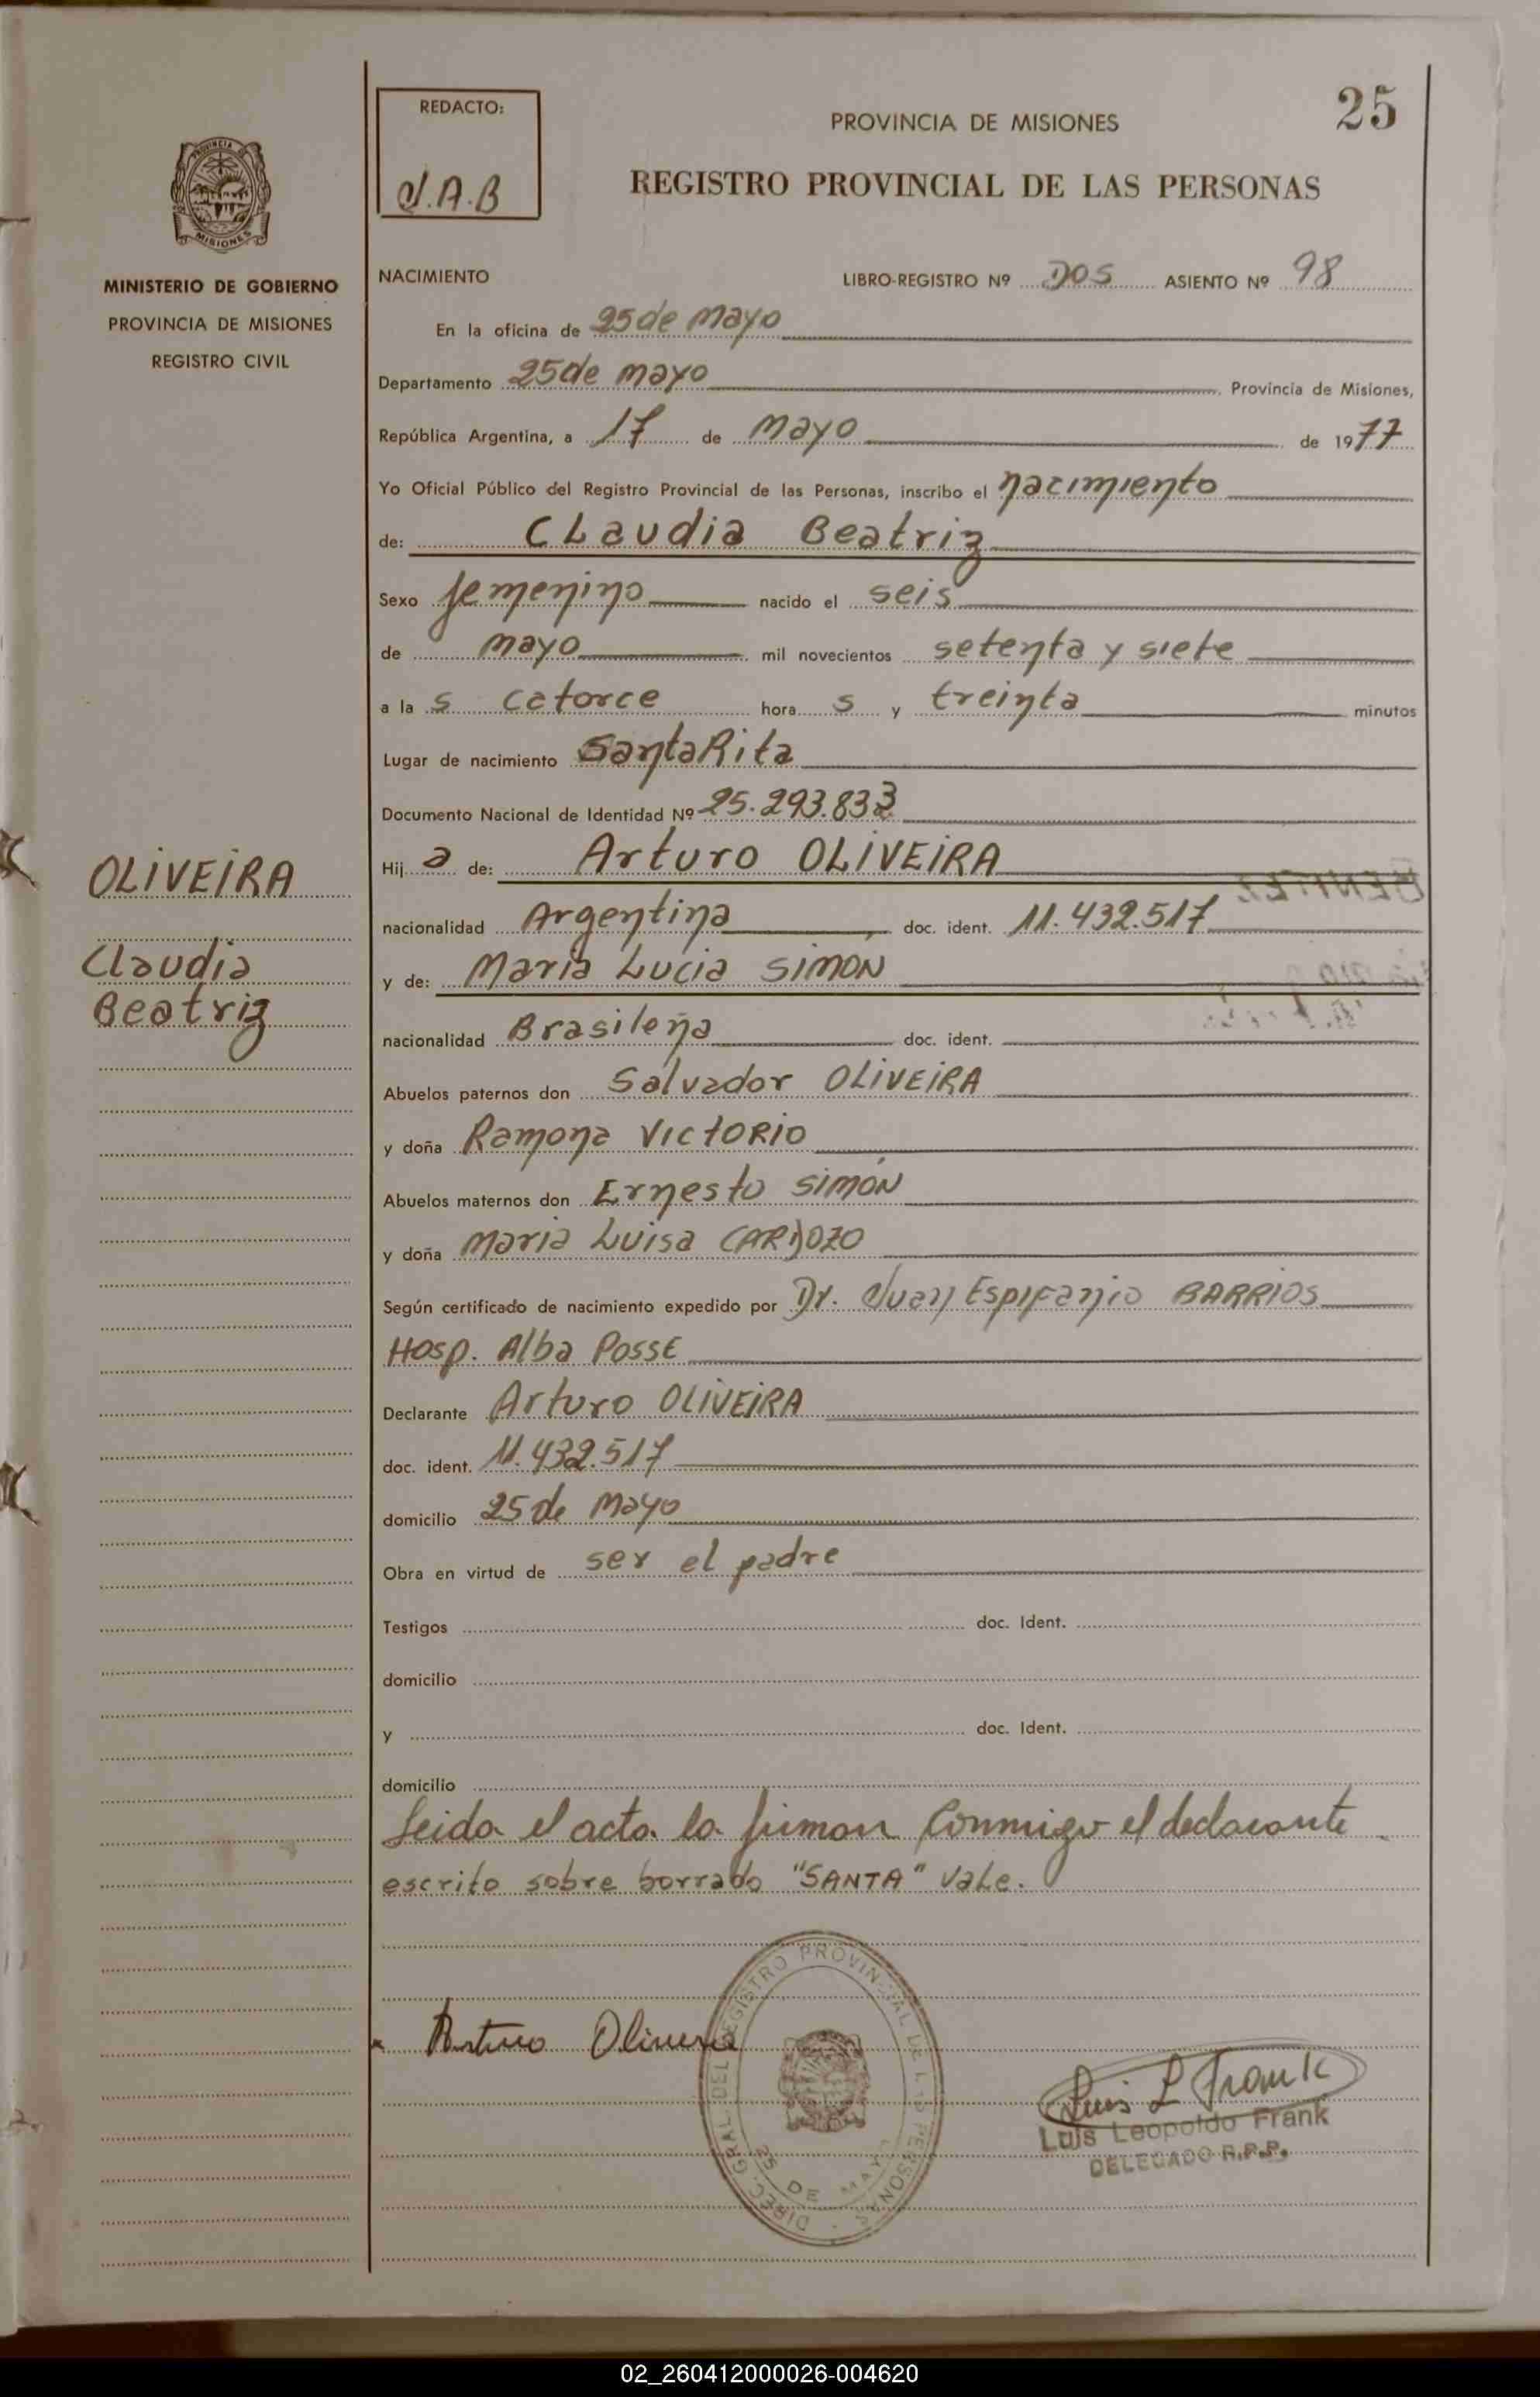 25
REDACTO:
J.A.B
PROVINCIA DE MISIONES
REGISTRO PROVINCIAL DE LAS PERSONAS
PROVINCIA DE
MISIONES
MINISTERIO DE GOBIERNO
PROVINCIA DE MISIONES
REGISTRO CIVIL
NACIMIENTO LIBRO-REGISTRO Nº DOS ASIENTO Nº 98
En la oficina de 25 de mayo
Departamento 25 de mayo, Provincia de Misiones,
República Argentina, a 17 de mayo de 1977
Yo Oficial Público del Registro Provincial de las Personas, inscribo el nacimiento
de: Claudia Beatriz
Sexo femenino nacido el seis
de mayo mil novecientos setenta y siete
a la s catorce hora s y treinta minutos
Lugar de nacimiento Santa Rita
Documento Nacional de Identidad Nº 25.293.833
OLIVEIRA
Claudia
Beatriz
Hij a de: Arturo OLIVEIRA
nacionalidad Argentina doc. ident. 11.432.517
y de: Maria Lucia SIMÓN
nacionalidad Brasileña doc. ident.
Abuelos paternos don Salvador OLIVEIRA
y doña Ramona VICTORIO
Abuelos maternos don Ernesto SIMÓN
y doña Maria Luisa CARDOZO
Según certificado de nacimiento expedido por Dr. Juan Espifanio BARRIOS
Hosp. Alba POSSE
Declarante Arturo OLIVEIRA
doc. ident. 11.432.517
domicilio 25 de Mayo
Obra en virtud de ser el padre
Testigos doc. Ident.
domicilio
y doc. Ident.
domicilio
Leida el acta la firman conmigo el declarante
escrito sobre borrado "SANTA" vale.
Arturo Oliveira
DIREC. GRAL. DEL REGISTRO PROVINCIAL DE LAS PERSONAS
25 DE MAYO
Luis L Frank
Luis Leopoldo Frank
DELEGADO R.P.P.
02_260412000026-004620